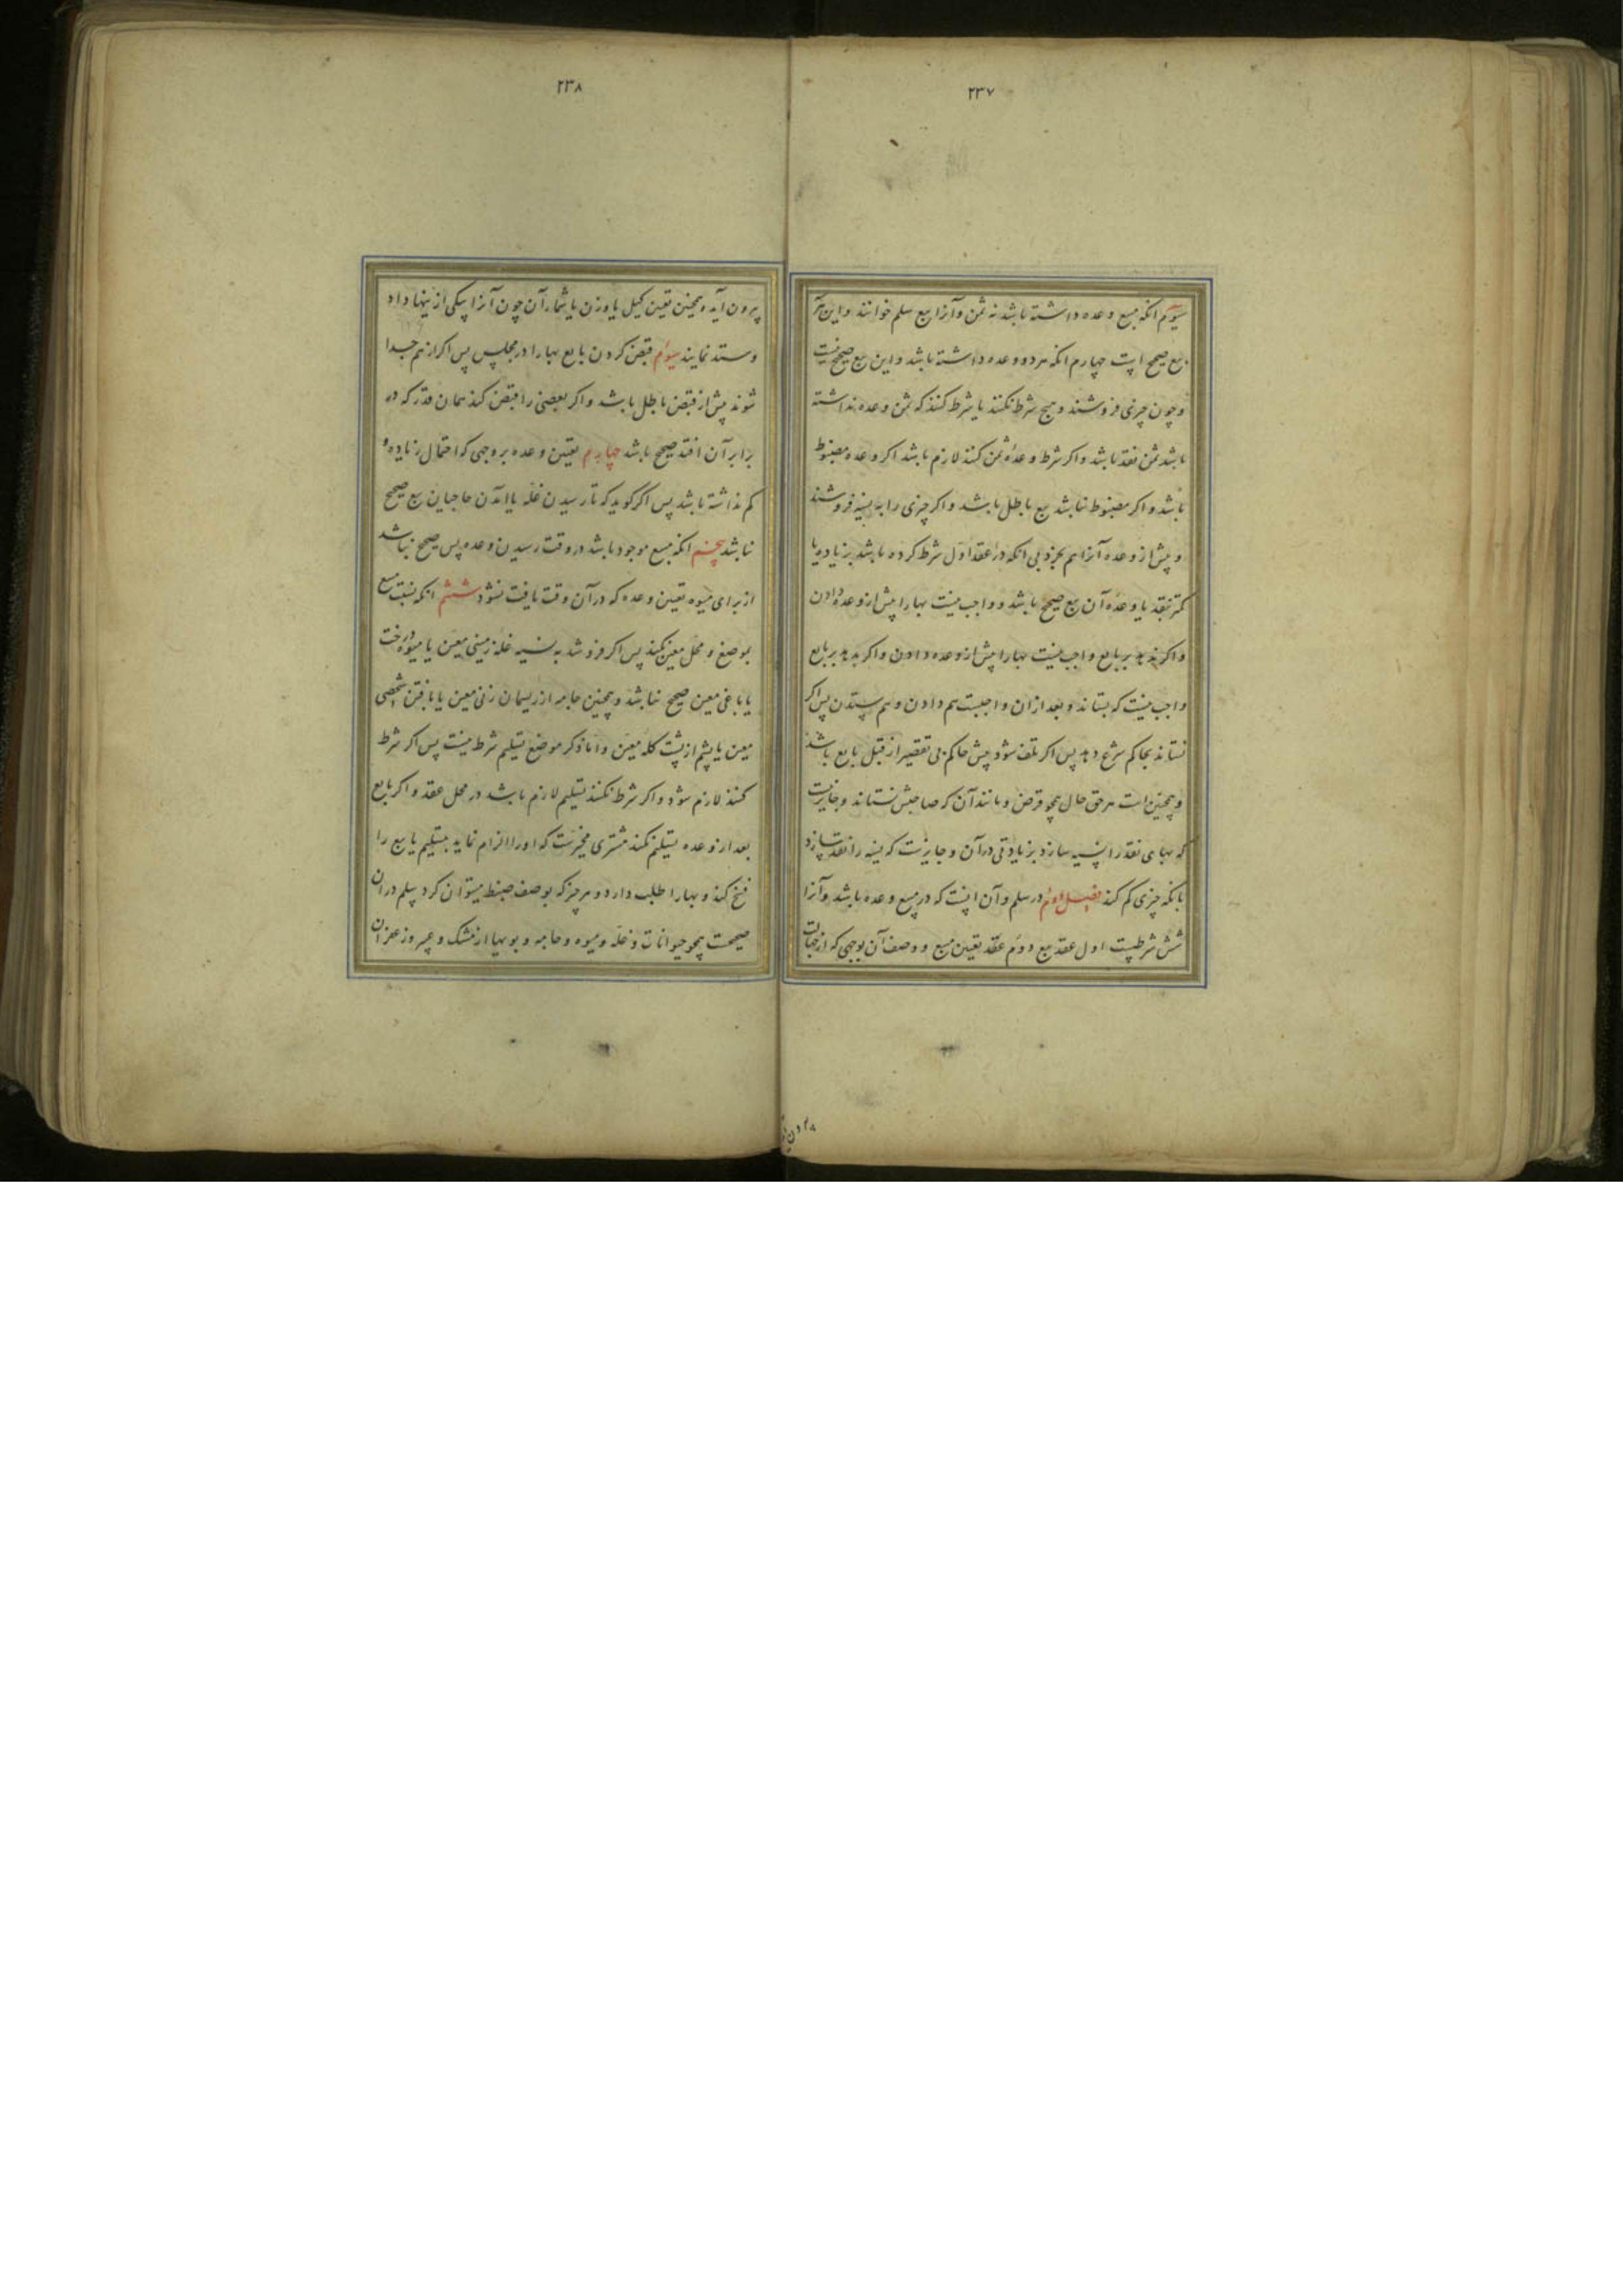 ۲۳۷
سیوم انکه مبیع وعده داشته باشد نه ثمن و آنرا بیع سلم خوانند و این نیز
بیع صحیح است چهارم انکه هر دو وعده داشته باشد و این بیع صحیح نیست
و چون چیزی فروشند و هیچ شرط نکنند یا شرط کنند که ثمن وعده نداشته
باشد ثمن نقد باشد و اکر شرط وعدهٔ ثمن کنند لازم باشد اکر وعده مضبوط
باشد و اکر مضبوط نباشد بیع باطل باشد و اکر چیزی را به نسیه فروشند
و پیش از وعده آنرا هم بخرد بی انکه در عقد اول شرط کرده باشد بزیاده یا
کمتر بنقد یا وعده آن بیع صحیح باشد و واجب نیست بها را پیش از وعده دادن
و اکر ندهد بر بایع واجب نیست بها را پیش از وعده دادن و اکر بدهد بر بایع
واجب نیست که بستاند و بعد از ان واجبست هم دادن و هم ستدن پس اکر
نستاند بحاکم شرع دهد پس اکر تلف شود پیش حاکم بی تقصیر از قبل بایع باشد
و همچنین است هر حق حال همچو قرض و مانند آن که صاحبش نستاند و جایز نیست
که بهای نقد را نسیه سازد بزیادتی در آن و جایزست که نسیه را نقد سازد
بانکه چیزی کم کند فصل دوم در سلم و آن اینست که در مبیع وعده باشد و آنرا
شش شرطست اول عقد بیع دوم عقد تعیین مبیع و وصف آن بوجهی که از جهالت
۲۳۸
بیرون آید و همچنین تعیین کیل یا وزن یا شمار آن چون آنرا بیکی از ینها داد
و ستد نمایند سیوم قبض کردن بایع بها را در مجلس پس اکر از هم جدا
شوند پیش از قبض باطل باشد و اکر بعضی را قبض کند همان قدر که در
برابر آن افتد صحیح باشد چهارم تعیین وعده بر وجهی که احتمال زیاده و
کم نداشته باشد پس اکر کوید که تا رسیدن غله یا آمدن حاجیان بیع صحیح
نباشد پنجم انکه مبیع موجود باشد در وقت رسیدن وعده پس صحیح نباشد
از برای میوه تعیین وعده که در آن وقت یافت نشود ششم انکه نسبت مبیع
بموضع و محل معین نکند پس اکر فروشد به نسیه غله زمینی معین یا میوه درخت
یا باغی معین صحیح نباشد و همچنین جامه از ریسمان زنی معین یا بافتن شخصی
معین یا پشم از پشت کله معین و اما ذکر موضع تسلیم شرط نیست پس اکر شرط
کنند لازم شود و اکر شرط نکنند تسلیم لازم باشد در محل عقد و اکر بایع
بعد از وعده تسلیم نکند مشتری مخیرست که او را الزام نماید بتسلیم یا بیع را
فسخ کند و بها را طلب دارد و هر چیز که بوصف ضبط میتوان کرد سلم در ان
صحیحست همچو حیوانات و غله و میوه و جامه و بویها از مشک و عنبر و زعفران